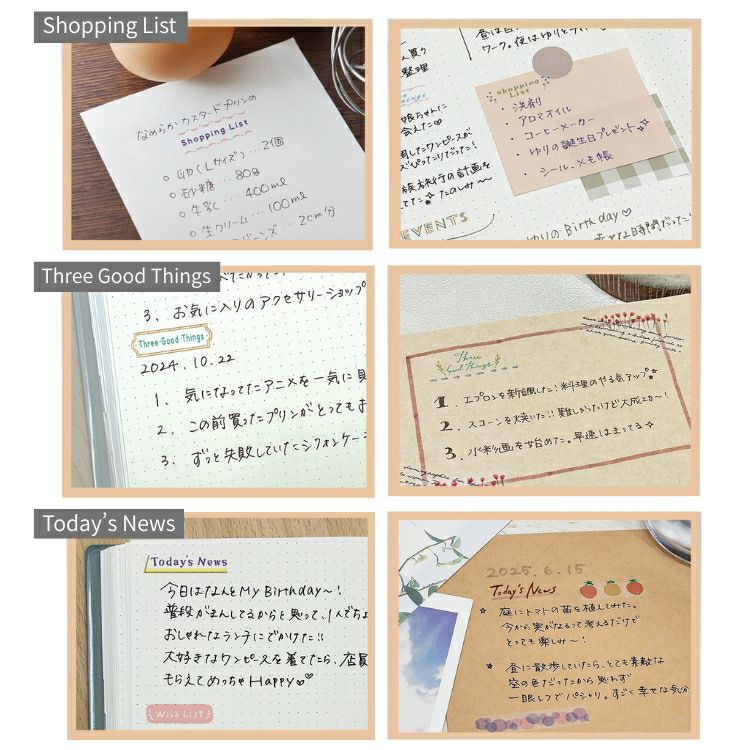 Shopping List
なめらかカスタードプリンの
Shopping List
卵(Lサイズ)…2個
砂糖…80g
牛乳…400ml
生クリーム…100ml
バニラビーンズ…2cm分
昼は
ワーク。夜はゆりと
買う
整理
会えた♡
したワンピースが
ぴったりだった!
族旅行の計画を
てた たのしみ〜
EVENTS
Shopping List
・洗剤
・アロマオイル
・コーヒーメーカー
・ゆりの誕生日プレゼント
・シール、メモ帳
ゆりのBirthday♡
2時間だった
Three Good Things
3. お気に入りのアクセサリーショップ
Three Good Things
2024.10.22
1. 気になってたアニメを一気に見
2. この前買ったプリンがとってもお
3. ずっと失敗していたシフォンケー
Three
Good Things
1. エプロンを新調した!料理のやる気アップ
2. スコーンを焼いた!!難しかったけど大成功〜!
3. 水彩画を始めた。早速はまってる
Today's News
Today's News
今日はなんとMy Birthday〜!
普段がまんしてるからと思って、1人でちょ
おしゃれなランチにでかけた!!
大好きなワンピースを着てたら、店員
もらえてめっちゃHappy♡♡
Wish List
2025.6.15
Today's News
庭にトマトの苗を植えてみた。
今から実がなるって考えるだけで
とっても楽しみ〜!
昼に散歩していたら、とても素敵な
空の色だったから思わず
一眼レフでパシャリ。すごく幸せな気分